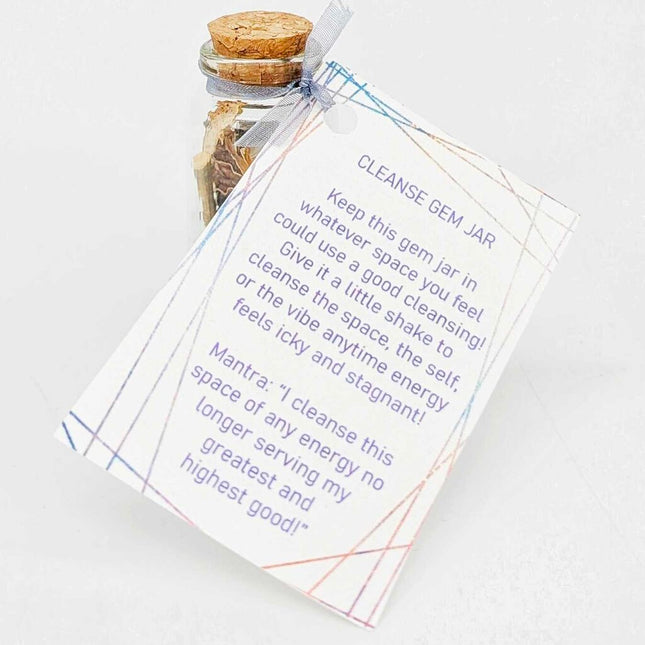 CLEANSE GEM JAR
Keep this gem jar in
whatever space you feel
could use a good cleansing!
Give it a little shake to
cleanse the space, the self,
or the vibe anytime energy
feels icky and stagnant!
Mantra: "I cleanse this
space of any energy no
longer serving my
greatest and
highest good!"